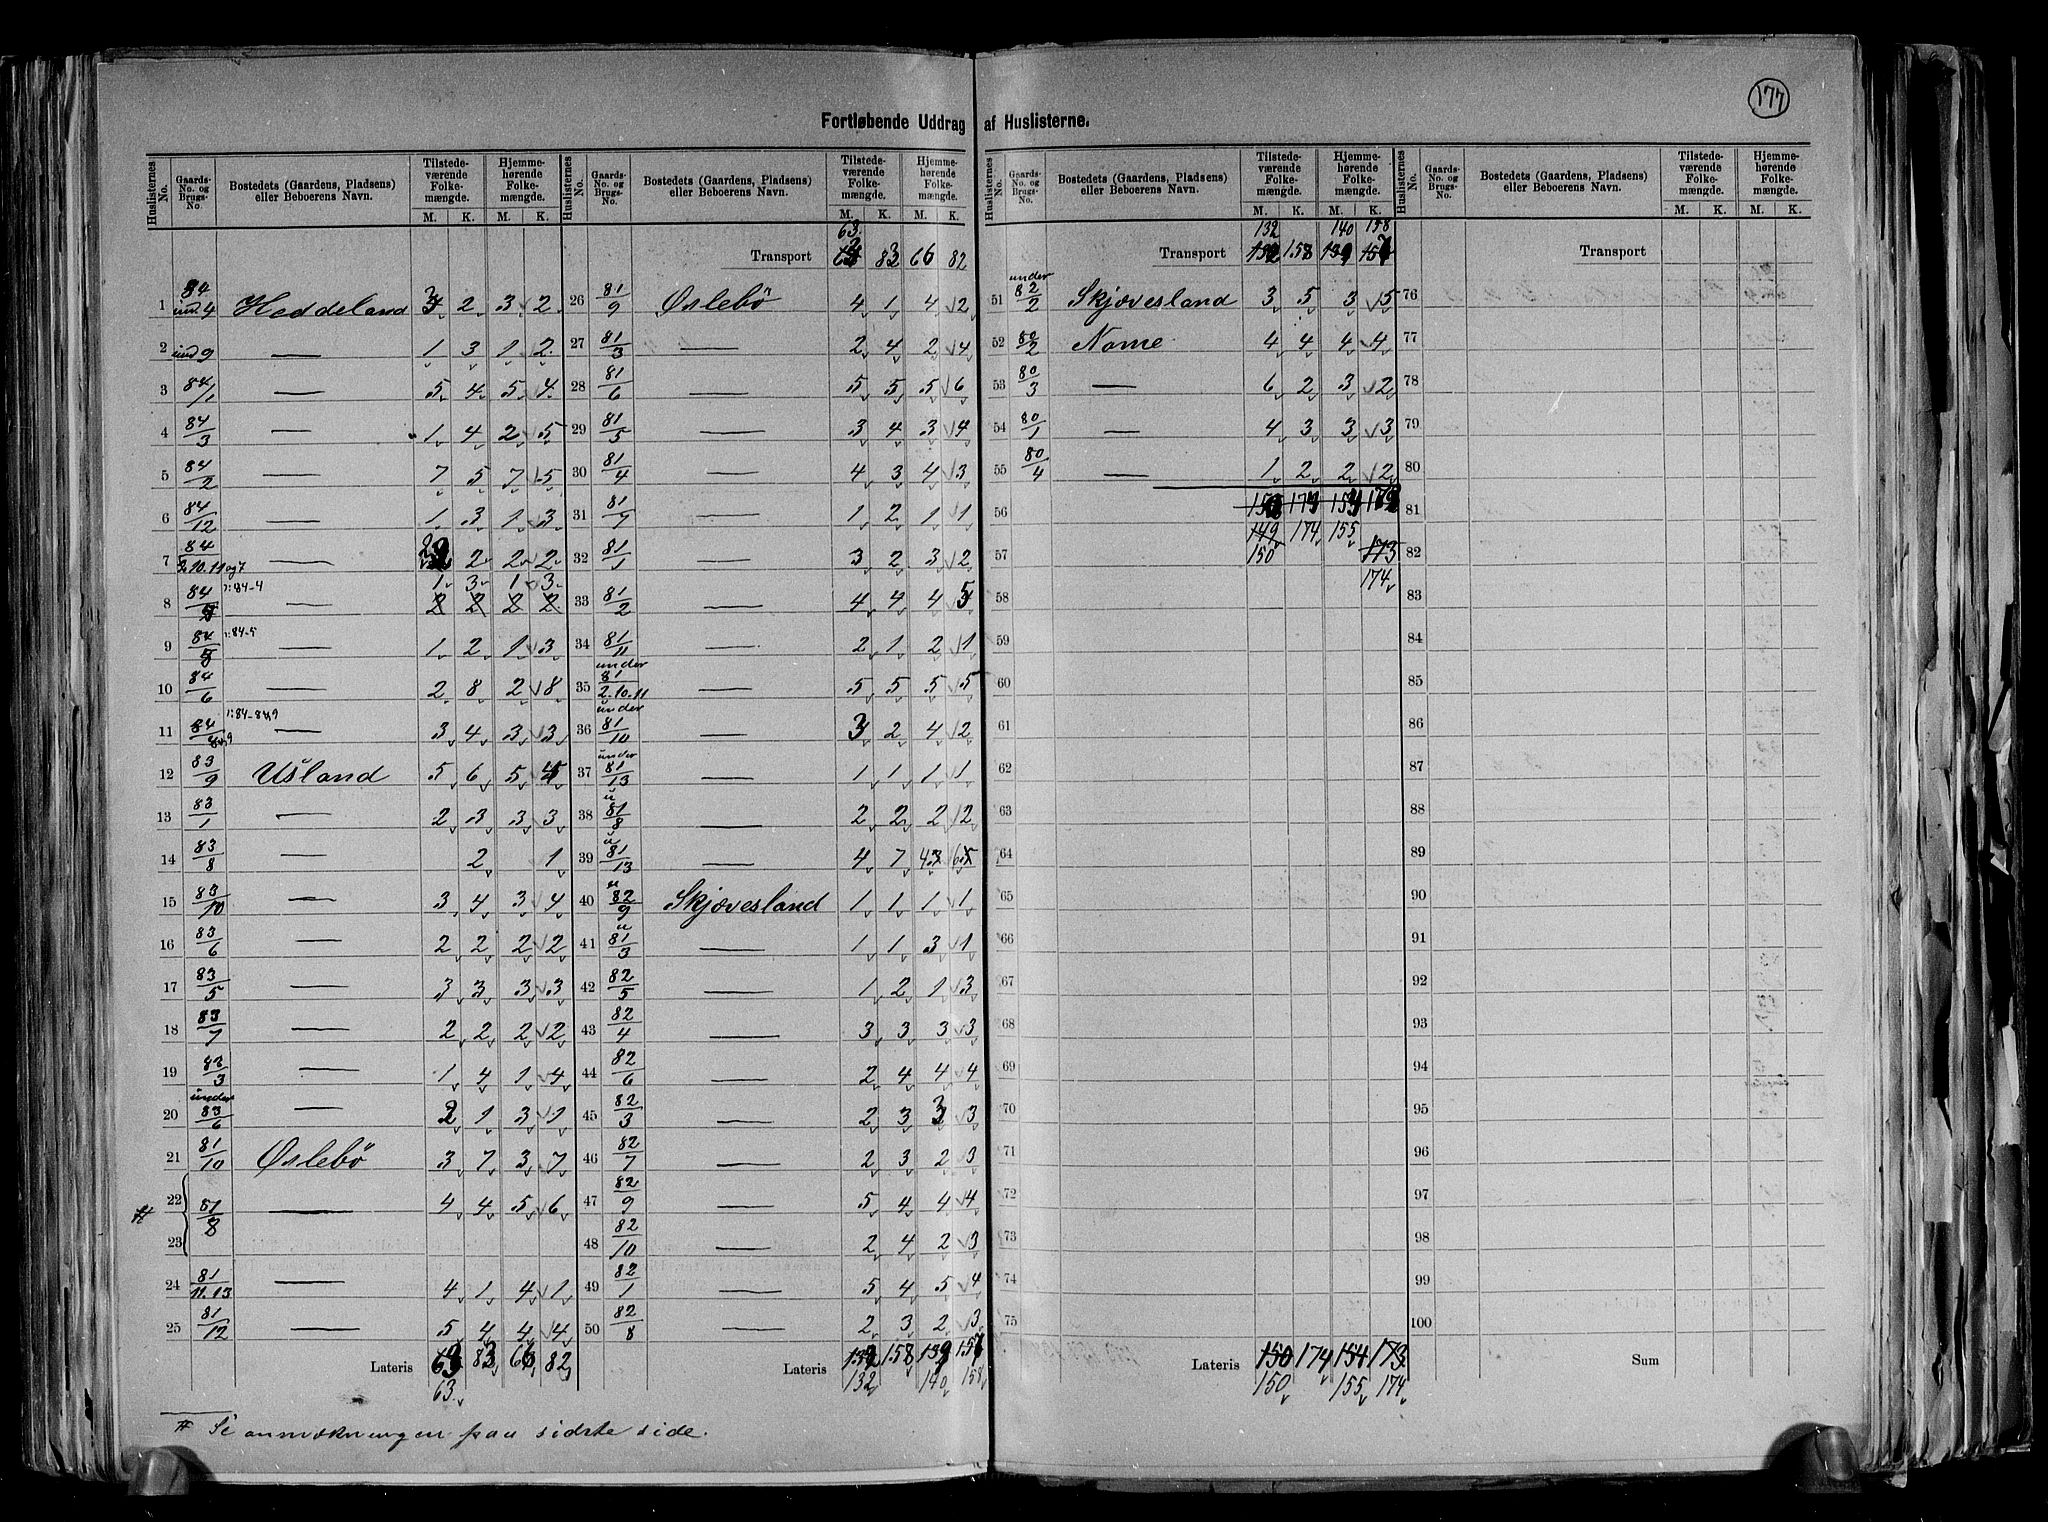 177
Fortløbende Uddrag af Huslisterne.
Huslisternes No. | Gaards-No. og Brugs-No. | Bostedets (Gaardens, Pladsens) eller Beboerens Navn. | Tilstedeværende Folkemængde. M. K. | Hjemmehørende Folkemængde. M. K.
1 84 und. 4 Heddeland 3 2 3 2
2 und 9 — 1 3 1 2
3 84/1 — 5 4 5 4
4 84/3 — 1 4 2 5
5 84/2 — 7 5 7 5
6 84/12 — 1 3 1 3
7 84 10.11 og 7 — 2 2 2
1 3 1 3
8 84 1:84-4 — 2 2 2 2
9 84 1:84-5 — 1 2 1 3
10 84/6 — 2 8 2 8
11 84 1:84-8og9 — 3 4 3 3
12 83/9 Usland 5 6 5
13 83/1 — 2 3 3 3
14 83/8 — 2 1
15 83/10 — 3 4 3 4
16 83/6 — 2 2 2 2
17 83/5 — 3 3 3 3
18 83/7 — 2 2 2 2
19 83/3 — 1 4 1 4
20 under 83/6 — 2 1 3 1
21 81/10 Øslebö 3 7 3 7
# 22 23 81/8 — 4 4 5 6
24 81/11.13 — 4 1 4 1
25 81/12 — 5 4 4 4
Lateris 83 66 82
63
# Se anmærkningen paa sidste side.
Huslisternes No. | Gaards-No. og Brugs-No. | Bostedets (Gaardens, Pladsens) eller Beboerens Navn. | Tilstedeværende Folkemængde. M. K. | Hjemmehørende Folkemængde. M. K.
63
Transport 83 66 82
26 81/9 Øslebö 4 1 4 2
27 81/3 — 2 4 2 4
28 81/6 — 5 5 5 6
29 81/5 — 3 4 3 4
30 81/4 — 4 3 4 3
31 81/7 — 1 2 1 1
32 81/1 — 3 2 3 2
33 81/2 — 4 4 4 5
34 81/11 — 2 1 2 1
35 under 81/2.10.11 — 5 5 5 5
36 under 81/10 — 3 2 4 2
37 under 81/13 — 1 1 1 1
38 u 81/8 — 2 2 2 2
39 u 81/13 — 4 7 4 6
40 u 82/9 Skjævesland 1 1 1 1
41 u 81/3 — 1 1 3 1
42 82/5 — 1 2 1 3
43 82/4 — 3 3 3 3
44 82/6 — 2 4 4 4
45 82/3 — 2 3 3 3
46 82/7 — 2 3 2 3
47 82/9 — 5 4 4 4
48 82/10 — 2 4 2 3
49 82/1 — 5 4 5 4
50 82/8 — 2 3 2 3
Lateris 158 139 157
132 140 158
Huslisternes No. | Gaards-No. og Brugs-No. | Bostedets (Gaardens, Pladsens) eller Beboerens Navn. | Tilstedeværende Folkemængde. M. K. | Hjemmehørende Folkemængde. M. K.
132 140 158
Transport 132 158 139 157
51 under 82/2 Skjævesland 3 5 3 5
52 80/2 Nome 4 4 4 4
53 80/3 — 6 2 3 2
54 80/1 — 4 3 3 3
55 80/4 — 1 2 2 2
56 174
149 174 155
57 150 173
174
58
59
60
61
62
63
64
65
66
67
68
69
70
71
72
73
74
75
Lateris 150 174 154 173
150 155 174
Huslisternes No. | Gaards-No. og Brugs-No. | Bostedets (Gaardens, Pladsens) eller Beboerens Navn. | Tilstedeværende Folkemængde. M. K. | Hjemmehørende Folkemængde. M. K.
Transport
76
77
78
79
80
81
82
83
84
85
86
87
88
89
90
91
92
93
94
95
96
97
98
99
100
Sum